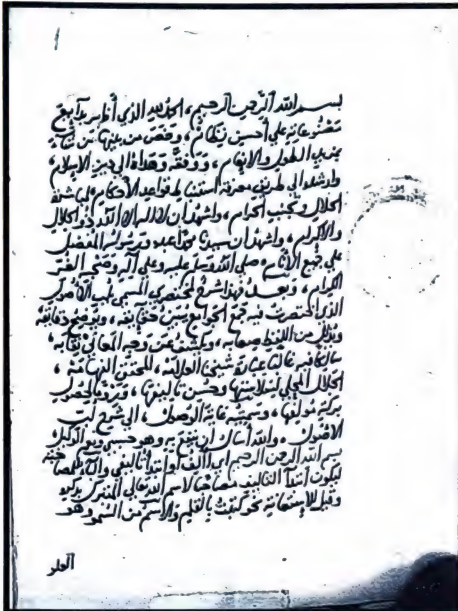 بسم الله الرحمن الرحيم، الحمد لله الذي أظهر بدائع
مصنوعاته على أحسن نظام، وخص من بينها من
بمزيد الطول والإنعام، ووفقه وهداه إلى دين الإسلام،
وارشده إلى طريق معرفة استنباط قواعد الأحكام لمباشرة
الحلال وتجنب الحرام، واشهد أن لا إله إلا الله ذو الجلال
والإكرام، واشهد أن سيدنا محمدا عبده ورسوله المفضل
على جميع الأنام صلى الله وسلم عليه وعلى آله وصحبه الغر
الكرام، وبعد فهذا شرح لمختصري المسمى بلب الأصول
الذي اختصرت فيه جمع الجوامع يبين حقائقه، ويوضح دقائقه
ويذلل من اللفظ صعابه، ويكشف عن وجه المعاني نقابه،
سالكا فيه غالبا عبارة شيخنا العلامة، المحقق الفهامة،
الجلال المحلي لسلاستها وحسن تأليفها، وروم الحصول
بركة مؤلفها، وسميته غاية الوصول، إلى شرح لب
الأصول، والله أسأل أن ينفع به وهو حسبي ونعم الوكيل
بسم الله الرحمن الرحيم أي أؤلف أو ابتدئ تأليفي والباء للمصاحبة
ليكون ابتداء التأليف مصاحبا لاسم الله تعالى المتبرك بذكره
وقيل للاستعانة نحو كتبت بالقلم والاسم من السمو وهو
العلو